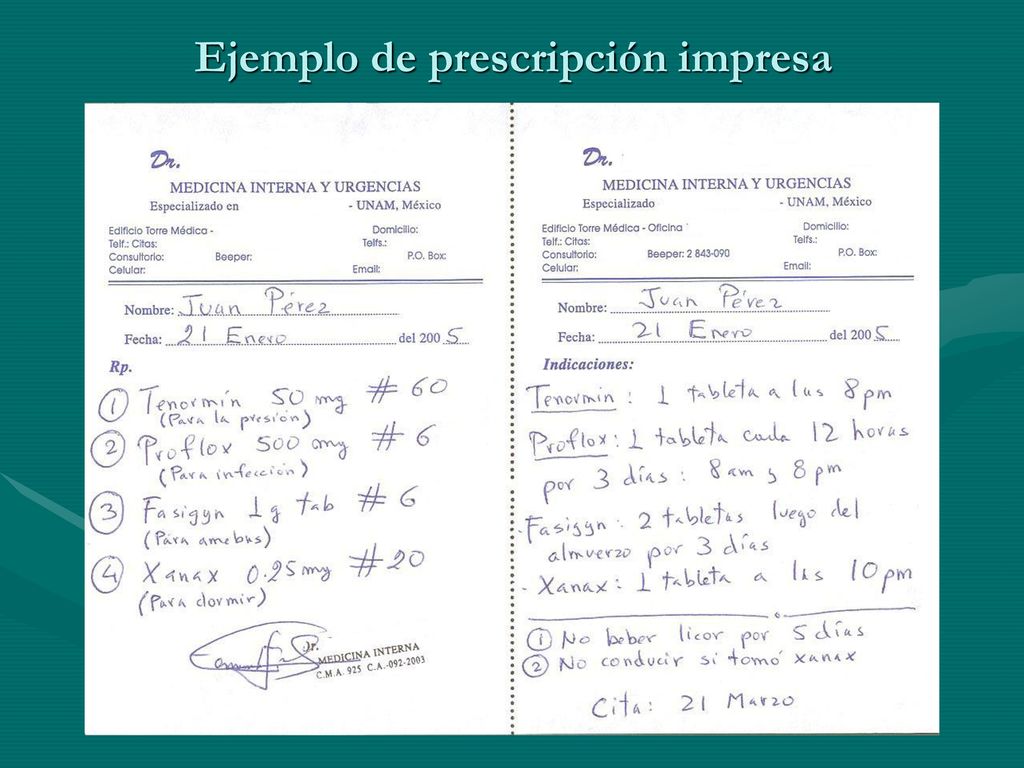 Ejemplo de prescripción impresa
Dr.
MEDICINA INTERNA Y URGENCIAS
Especializado en - UNAM, México
Edificio Torre Médica - Domicilio:
Telf.: Citas: Telfs.:
Consultorio: Beeper: P.O. Box:
Celular: Email:
Nombre: Juan Pérez
Fecha: 21 Enero del 2005
Rp.
① Tenormín 50 mg # 60
(Para la presión)
② Proflox 500 mg # 6
(Para infección)
③ Fasigyn 1 g tab # 6
(Para amebas)
④ Xanax 0.25 mg # 20
(Para dormir)
Dr.
MEDICINA INTERNA
C.M.A. 925 C.A.-092-2003
Dr.
MEDICINA INTERNA Y URGENCIAS
Especializado - UNAM, México
Edificio Torre Médica - Oficina Domicilio:
Telf.: Citas: Telfs.:
Consultorio: Beeper: 2 843-090 P.O. Box:
Celular: Email:
Nombre: Juan Pérez
Fecha: 21 Enero del 2005
Indicaciones:
Tenormin : 1 tableta a las 8 pm
Proflox : 1 tableta cada 12 horas
por 3 días : 8 am y 8 pm
- Fasigyn : 2 tabletas luego del
almuerzo por 3 días
- Xanax : 1 tableta a las 10 pm
① No beber licor por 5 días
② No conducir si tomó xanax
Cita : 21 Marzo